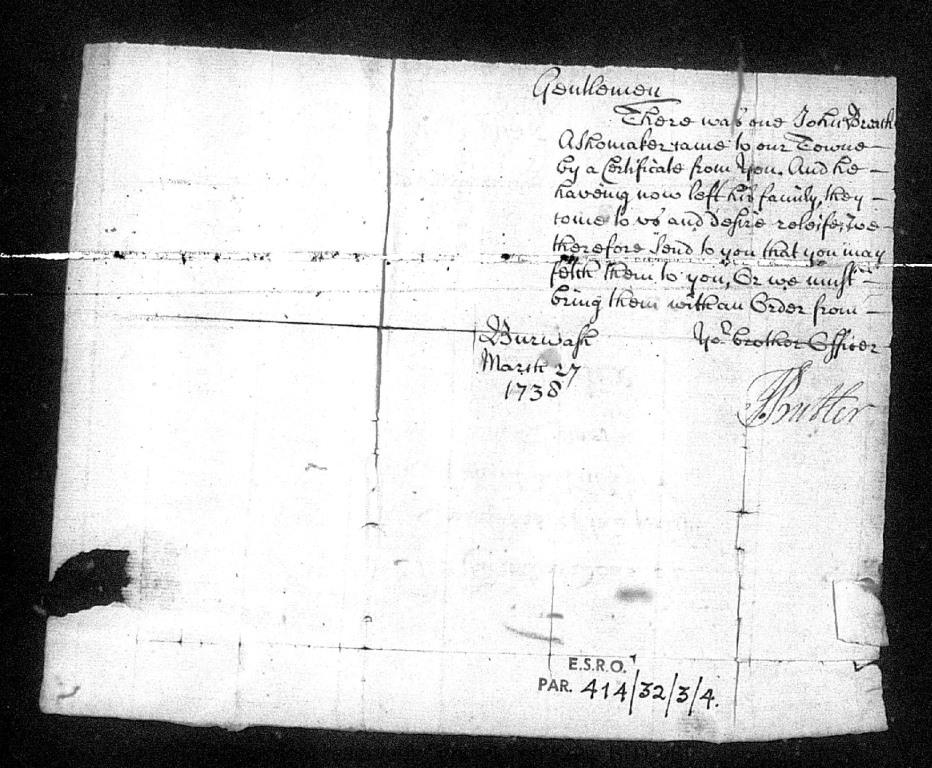 Gentlemen
There was one John
A Shomaker came to our Towne
by a Certificate from You. And he
haveing now left his family, they
come to us and desire releife, we
therefore Send to you that you may
fetch them to you, Or we must
bring them with an Order from
Burwash Yor. brother Officer
March 27
1738
Butler
E.S.R.O.
PAR. 414/32/3/4.